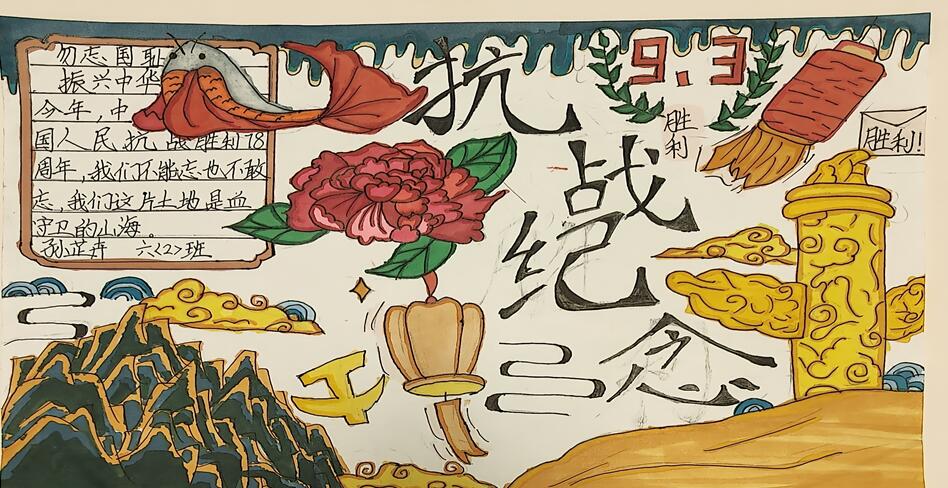 勿忘国耻
振兴中华
今年,中
国人民抗战胜利78
周年,我们不能忘也不敢
忘,我们这片土地是血
守卫的山海。
孙芷卉 六<2>班
抗
战
纪
念
9.3
胜
利
胜利!